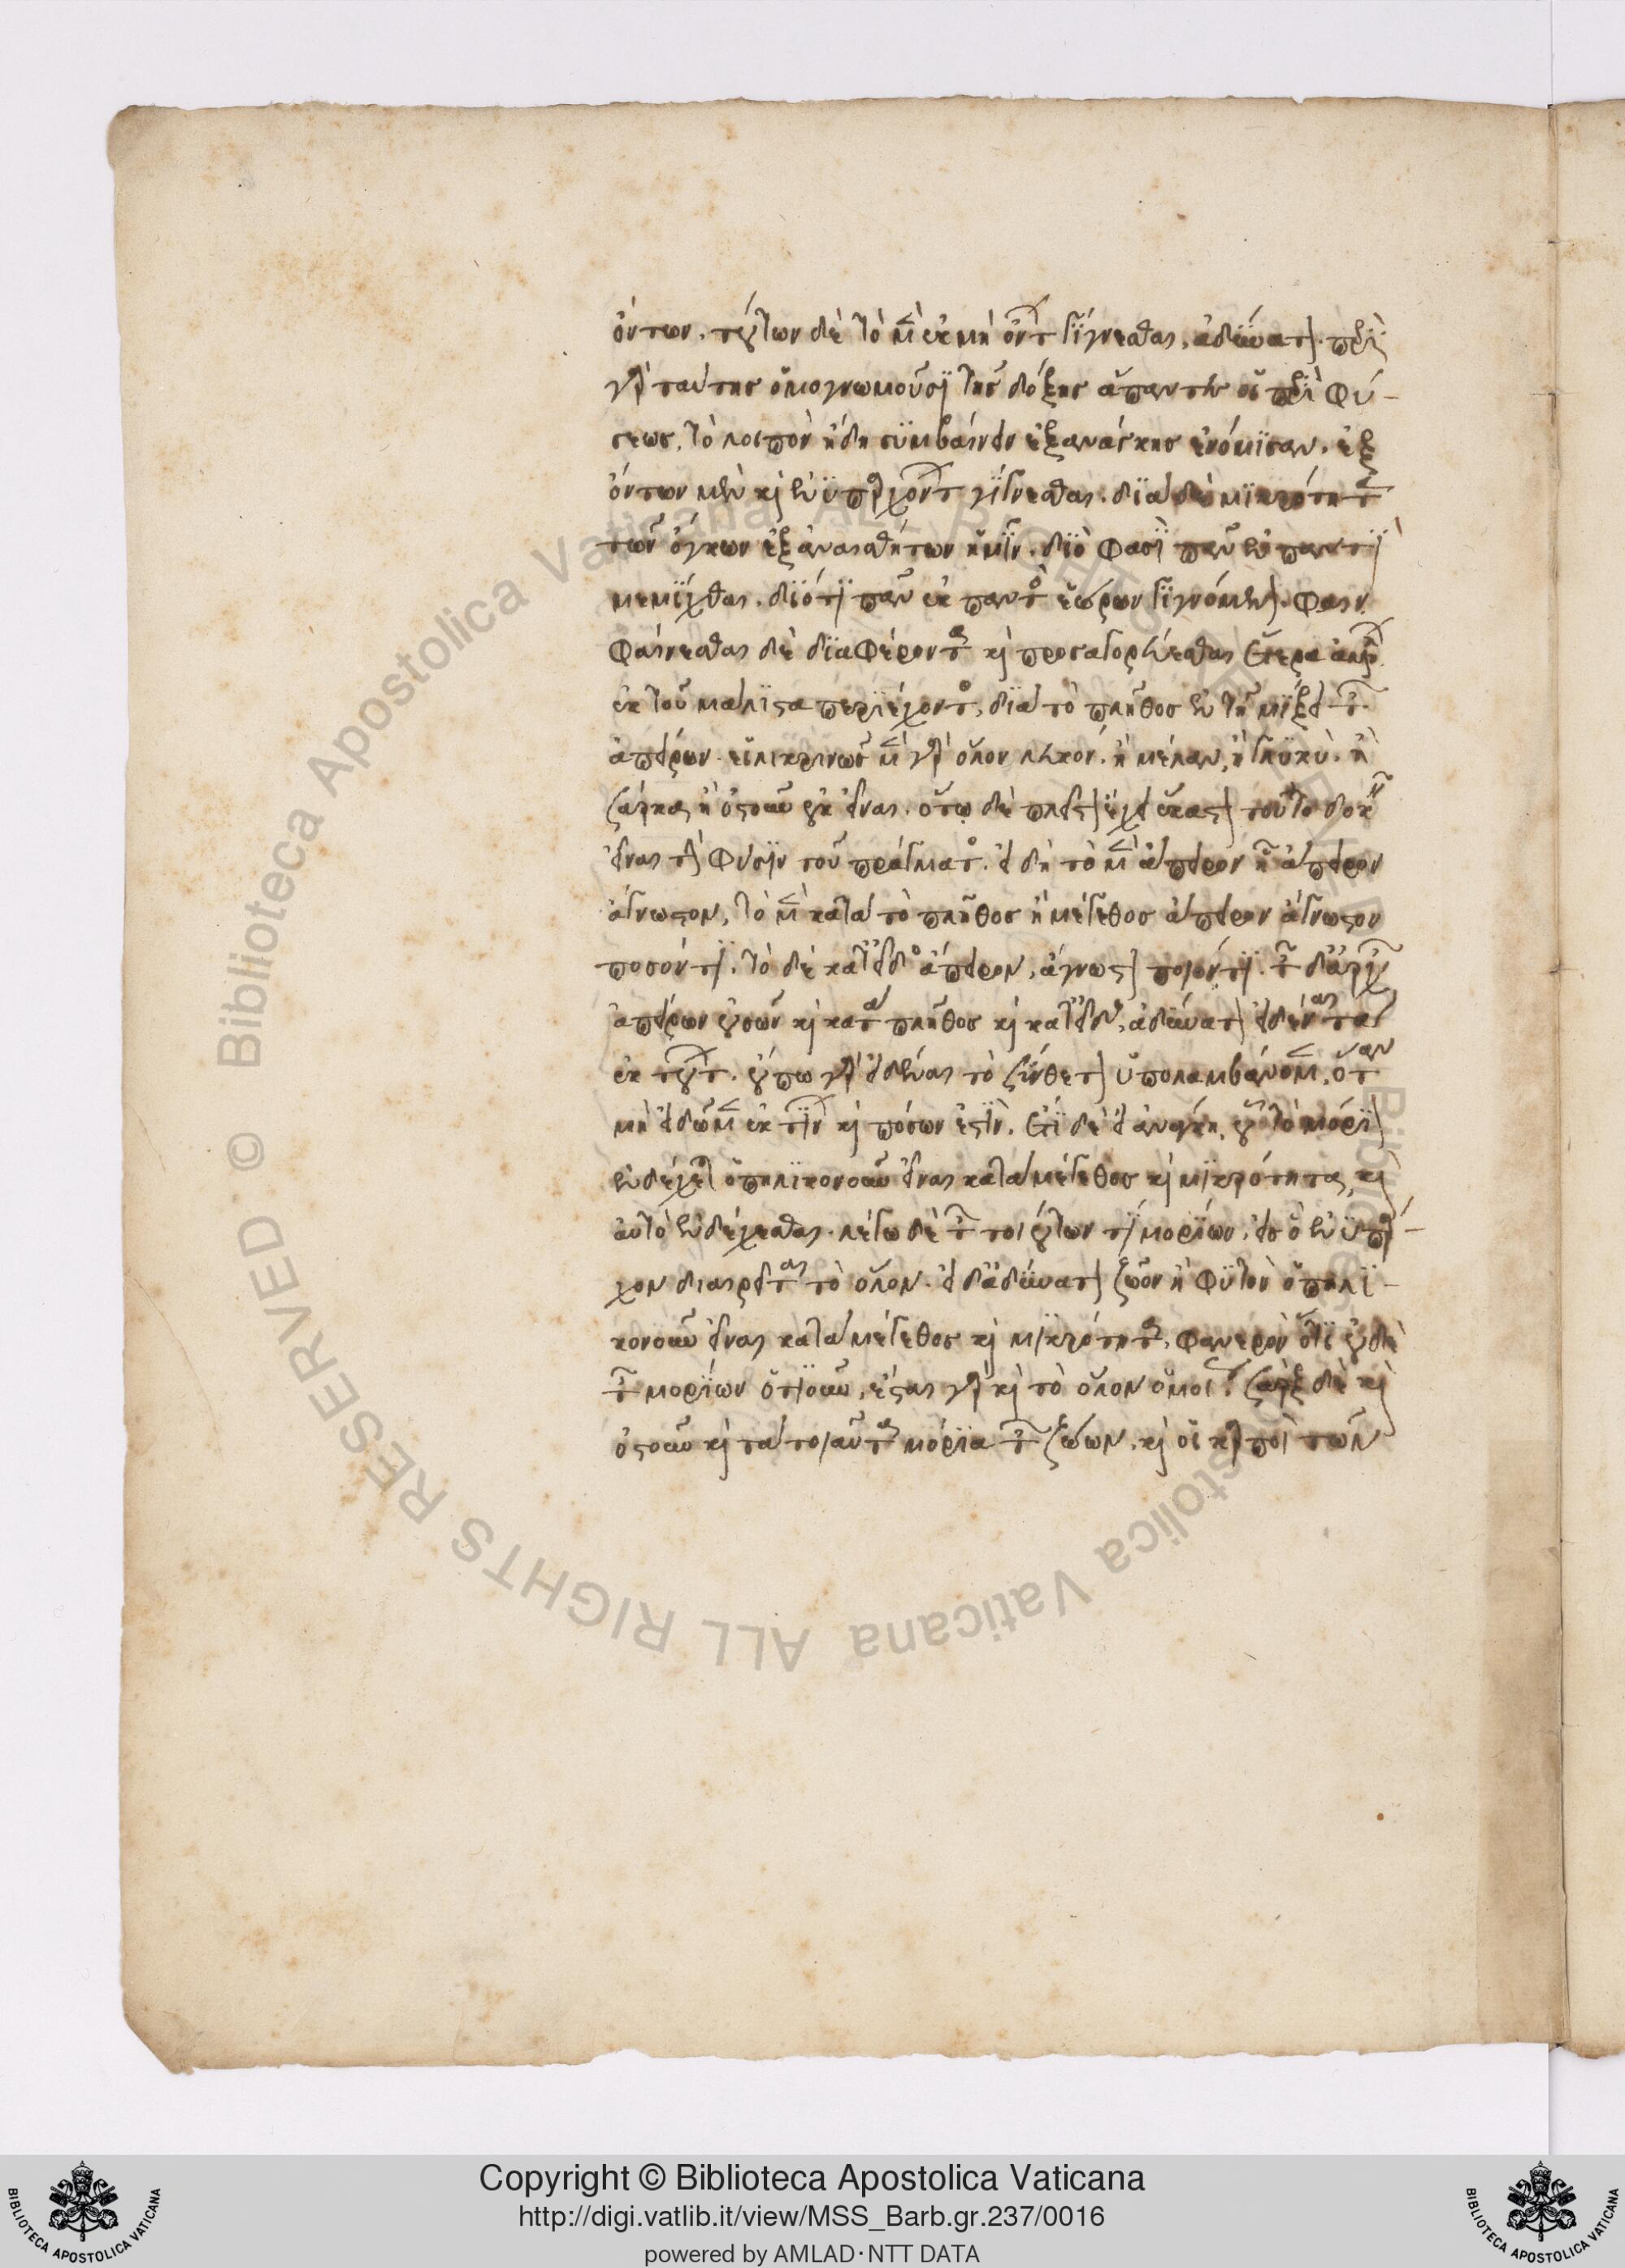 ὄντων. τούτων δὲ τὸ μὲν ἐκ μὴ ὄντων γίγνεσθαι, ἀδύνατον. περὶ
γὰρ ταύτης ὁμογνωμονοῦσι τῆς δόξης ἅπαντες οἱ περὶ φύ-
σεως. τὸ λοιπὸν ἤδη συμβαίνειν ἐξανάγκης ἐνόμισαν. ἐξ
ὄντων μὲν καὶ ἐνυπαρχόντων γίγνεσθαι. διὰ δὲ μικρότητα
τῶν ὄγκων ἐξ ἀναισθήτων ἡμῖν. διό φασι πᾶν ἐν παντὶ
μεμίχθαι. διότι πᾶν ἐκ παντὸς ἑώρων γιγνόμενον.
φαίνεσθαι δὲ διαφέροντα καὶ προσαγορεύεσθαι ἕτερα ἀλλήλων
ἐκ τοῦ μάλιστα περιέχοντος, διὰ τὸ πλῆθος ἐν τῇ μίξει τῶν
ἀπείρων. εἰλικρινῶς μὲν γὰρ ὅλον λευκόν. ἢ μέλαν, ἢ γλυκὺ. ἢ
σάρκα ἢ ὀστοῦν οὐκ εἶναι. ὅτῳ δὲ πλεῖστον ἔχει ἕκαστον τοῦτο δοκεῖν
εἶναι τὴν φύσιν τοῦ πράγματος. εἰ δὴ τὸ μὲν ἄπειρον ᾗ ἄπειρον
ἄγνωστον, τὸ μὲν κατὰ τὸ πλῆθος ἢ μέγεθος ἄπειρον ἄγνωστον
ποσόν τι. τὸ δὲ κατ' εἶδος ἄπειρον, ἄγνωστον ποιόν τι. τῶν δ' ἀρχῶν
ἀπείρων οὐσῶν καὶ κατὰ πλῆθος καὶ κατ' εἶδος, ἀδύνατον εἰδέναι τὰ
ἐκ τούτων. οὕτω γὰρ εἰδέναι τὸ σύνθετον ὑπολαμβάνομεν, ὅταν
μὴ εἰδῶμεν ἐκ τίνων καὶ πόσων ἐστὶν. ἔτι δὲ εἰ ἀνάγκη, οὗ τὸ μόριον
ἐνδέχεται ὁπηλικονοῦν εἶναι κατὰ μέγεθος καὶ μικρότητα, καὶ
αὐτὸ ἐνδέχεσθαι. λέγω δὲ τῶν τοιούτων τι μορίων, εἰς ὃ ἐνυπάρ-
χον διαιρεῖται τὸ ὅλον. εἰ δ' ἀδύνατον ζῷον ἢ φυτὸν ὁπηλι-
κονοῦν εἶναι κατὰ μέγεθος καὶ μικρότητα, φανερὸν ὅτι οὐδὲ
τῶν μορίων ὁτιοῦν, ἔσται γὰρ καὶ τὸ ὅλον ὁμοίως. σὰρξ δὲ καὶ
ὀστοῦν καὶ τὰ τοιαῦτα μόρια τῶν ζώων. καὶ οἱ καρποὶ τῶν
Copyright © Biblioteca Apostolica Vaticana
http://digi.vatlib.it/view/MSS_Barb.gr.237/0016
powered by AMLAD·NTT DATA